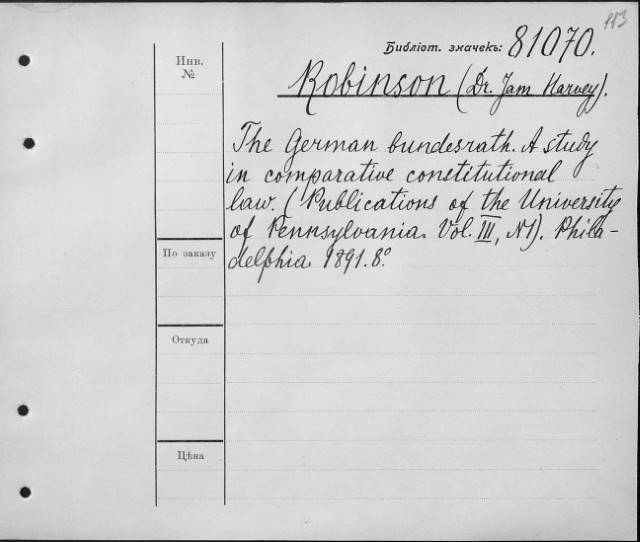 113
Библіот. значекъ: 81070.
Инв.
№
Robinson (Dr. Jam Harvey).
The German bundesrath. A study
in comparative constitutional
law. (Publications of the University
of Pennsylvania. Vol. III, N1). Phila-
delphia 1891. 8º
По заказу
Откуда
Цѣна